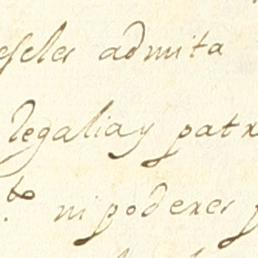 eseles admita
Regalia y patr
to ni poderes p